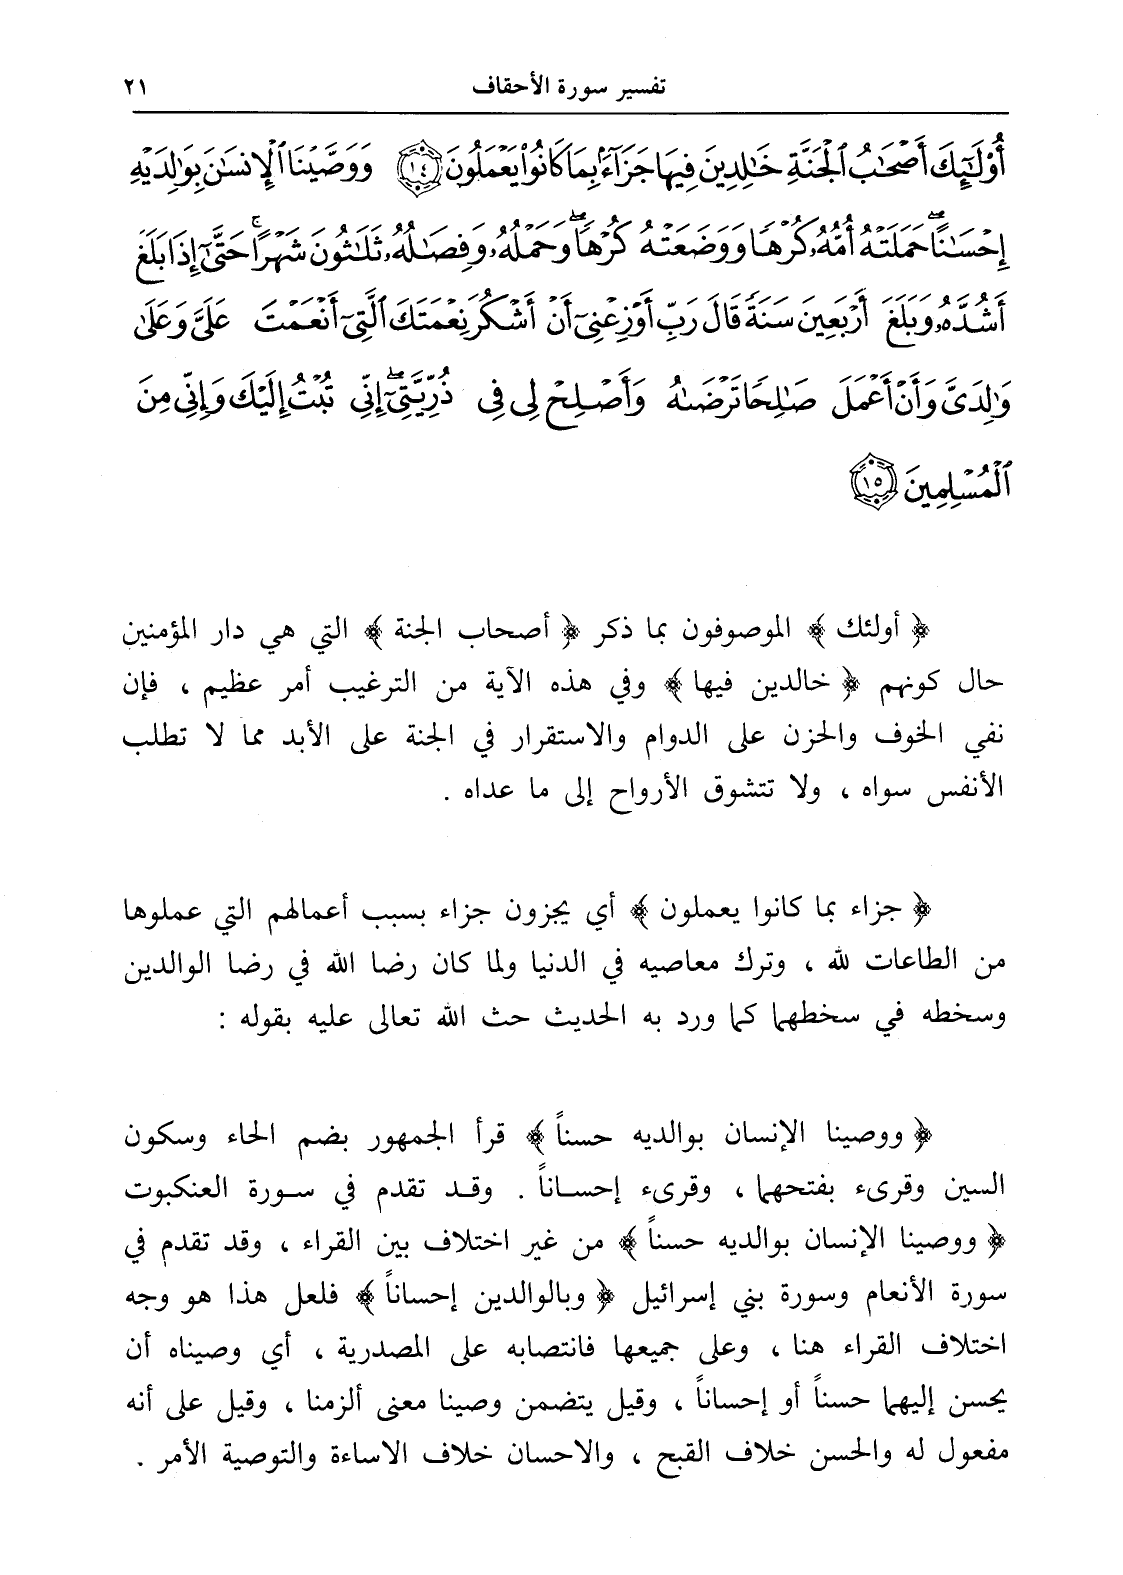 تفسير سورة الأحقاف ٢١
أُوْلَٰٓئِكَ أَصْحَٰبُ ٱلْجَنَّةِ خَٰلِدِينَ فِيهَا جَزَآءَۢ بِمَا كَانُوا۟ يَعْمَلُونَ ١٤ وَوَصَّيْنَا ٱلْإِنسَٰنَ بِوَٰلِدَيْهِ
إِحْسَٰنًاۖ حَمَلَتْهُ أُمُّهُۥ كُرْهًا وَوَضَعَتْهُ كُرْهًاۖ وَحَمْلُهُۥ وَفِصَٰلُهُۥ ثَلَٰثُونَ شَهْرًاۚ حَتَّىٰٓ إِذَا بَلَغَ
أَشُدَّهُۥ وَبَلَغَ أَرْبَعِينَ سَنَةً قَالَ رَبِّ أَوْزِعْنِىٓ أَنْ أَشْكُرَ نِعْمَتَكَ ٱلَّتِىٓ أَنْعَمْتَ عَلَىَّ وَعَلَىٰ
وَٰلِدَىَّ وَأَنْ أَعْمَلَ صَٰلِحًا تَرْضَىٰهُ وَأَصْلِحْ لِى فِى ذُرِّيَّتِىٓۖ إِنِّى تُبْتُ إِلَيْكَ وَإِنِّى مِنَ
ٱلْمُسْلِمِينَ ١٥
﴿ أولئك ﴾ الموصوفون بما ذكر ﴿ أصحاب الجنة ﴾ التي هي دار المؤمنين
حال كونهم ﴿ خالدين فيها ﴾ وفي هذه الآية من الترغيب أمر عظيم ، فإن
نفي الخوف والحزن على الدوام والاستقرار في الجنة على الأبد مما لا تطلب
الأنفس سواه ، ولا تتشوق الأرواح إلى ما عداه .
﴿ جزاء بما كانوا يعملون ﴾ أي يجزون جزاء بسبب أعمالهم التي عملوها
من الطاعات لله ، وترك معاصيه في الدنيا ولما كان رضا الله في رضا الوالدين
وسخطه في سخطهما كما ورد به الحديث حث الله تعالى عليه بقوله :
﴿ ووصينا الإنسان بوالديه حسناً ﴾ قرأ الجمهور بضم الحاء وسكون
السين وقرىء بفتحهما ، وقرىء إحساناً . وقد تقدم في سورة العنكبوت
﴿ ووصينا الإنسان بوالديه حسناً ﴾ من غير اختلاف بين القراء ، وقد تقدم في
سورة الأنعام وسورة بني إسرائيل ﴿ وبالوالدين إحساناً ﴾ فلعل هذا هو وجه
اختلاف القراء هنا ، وعلى جميعها فانتصابه على المصدرية ، أي وصيناه أن
يحسن إليهما حسناً أو إحساناً ، وقيل يتضمن وصينا معنى ألزمنا ، وقيل على أنه
مفعول له والحسن خلاف القبح ، والاحسان خلاف الاساءة والتوصية الأمر .